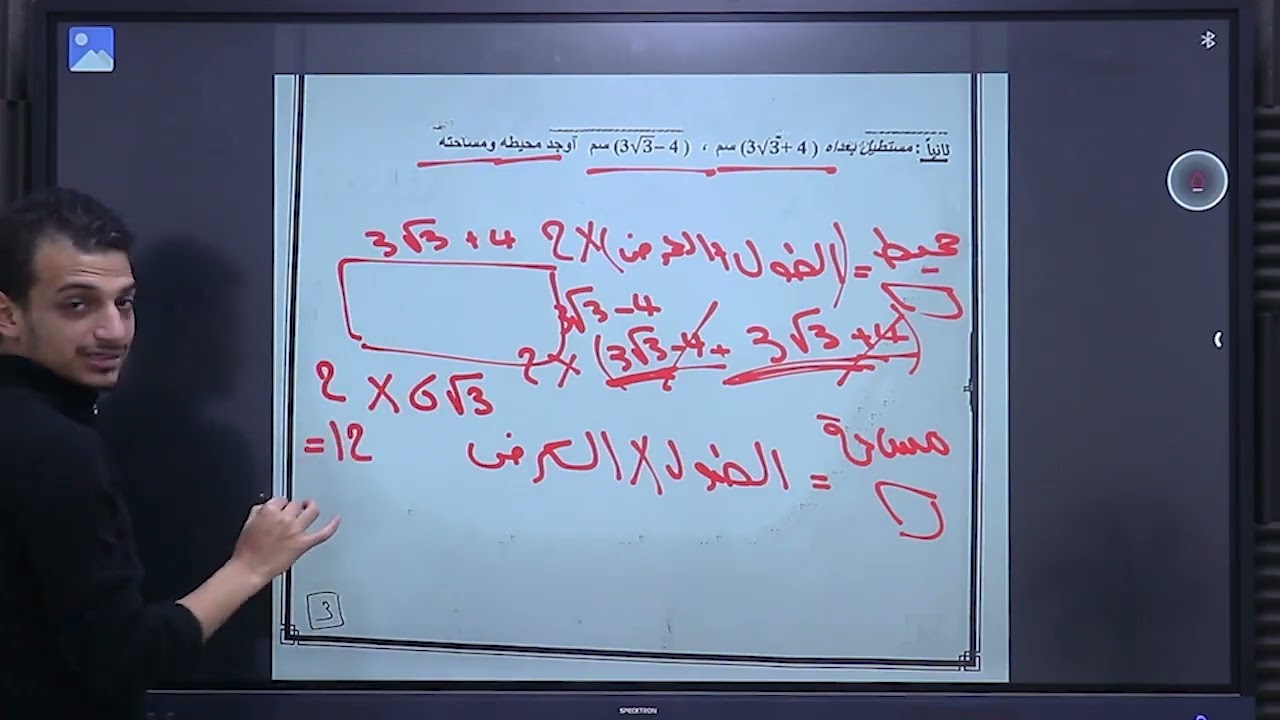 ثانياً : مستطيل بعداه ( 4 +3√3) سم ، ( 4 –3√3) سم أوجد محيطه ومساحته
محيط = (الطول + العرض) × 2
3√3 + 4
3√3 - 4
2 × (3√3 - 4 + 3√3 + 4)
2 × 6√3
= 12
مساحة = الطول × العرض
3
SPECKTRON